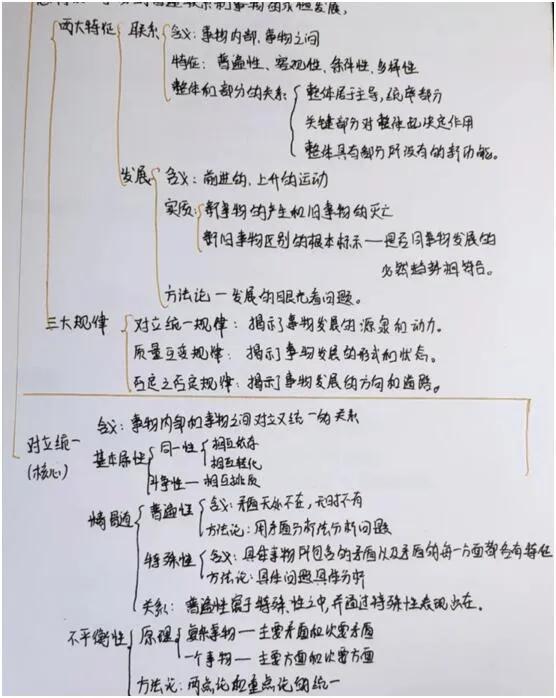 的普遍联系和事物的永恒发展,
两大特征 联系 含义：事物内部、事物之间
特征：普遍性、客观性、条件性、多样性
整体和部分的关系 整体居于主导,统率部分
关键部分对整体起决定作用
整体具有部分所没有的新功能。
发展 含义：前进的、上升的运动
实质：新事物的产生和旧事物的灭亡
新旧事物区别的根本标示——是否同事物发展的
必然趋势相符合。
方法论—发展的眼光看问题。
三大规律 对立统一规律：揭示了事物发展的源泉和动力。
质量互变规律：揭示了事物发展的形式和状态。
否定之否定规律：揭示了事物发展的方向和道路。
含义：事物内部和事物之间对立又统一的关系
对立统一 基本属性 同一性 相互依存
(核心) 相互转化
斗争性—相互排斥
普遍性 含义：矛盾无处不在,无时不有
方法论：用矛盾分析法分析问题
特殊性 含义：具体事物所包含的矛盾以及矛盾的每一方面都各有特征
方法论：具体问题具体分析
关系：普遍性寓于特殊性之中,并通过特殊性表现出来。
不平衡性 原理 复杂事物—主要矛盾和次要矛盾
一个事物—主要方面和次要方面
方法论：两点论和重点论的统一